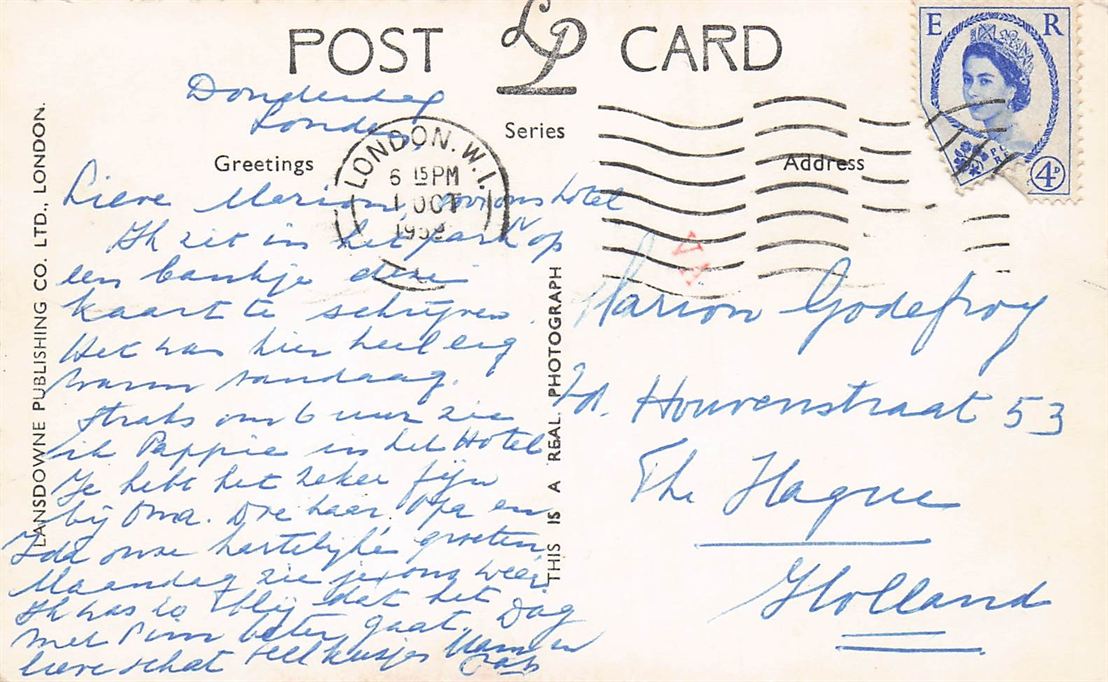 POST CARD
LP
Series
Greetings
Address
LANSDOWNE PUBLISHING CO. LTD., LONDON.
THIS IS A REAL PHOTOGRAPH
E R
4D
LONDON. W.1.
6 15 PM
1 OCT
Donderdag
Londen
Lieve Marion, voor ons hotel
Ik zit in het park op
een bankje deze
kaart te schrijven.
Het was hier heel erg
warm vandaag.
Straks om 6 uur zie
ik Pappie in het Hotel
Je hebt het zeker fijn
bij Oma. Doe haar, Opa en
Ida onze hartelijke groeten
Maandag zie je ons weer
Ik was zo blij dat het
met Pim beter gaat. Dag
lieve schat veel kusjes Mam en
Pap
Marion Godefroy
Houvenstraat 53
The Hague
Holland